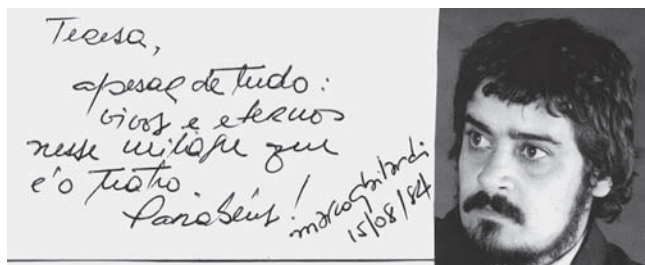 Teresa,
apesar de tudo:
vivos e eternos
nesse milagre que
é o teatro.
Parabéns!
marco ghilardi
15/08/84